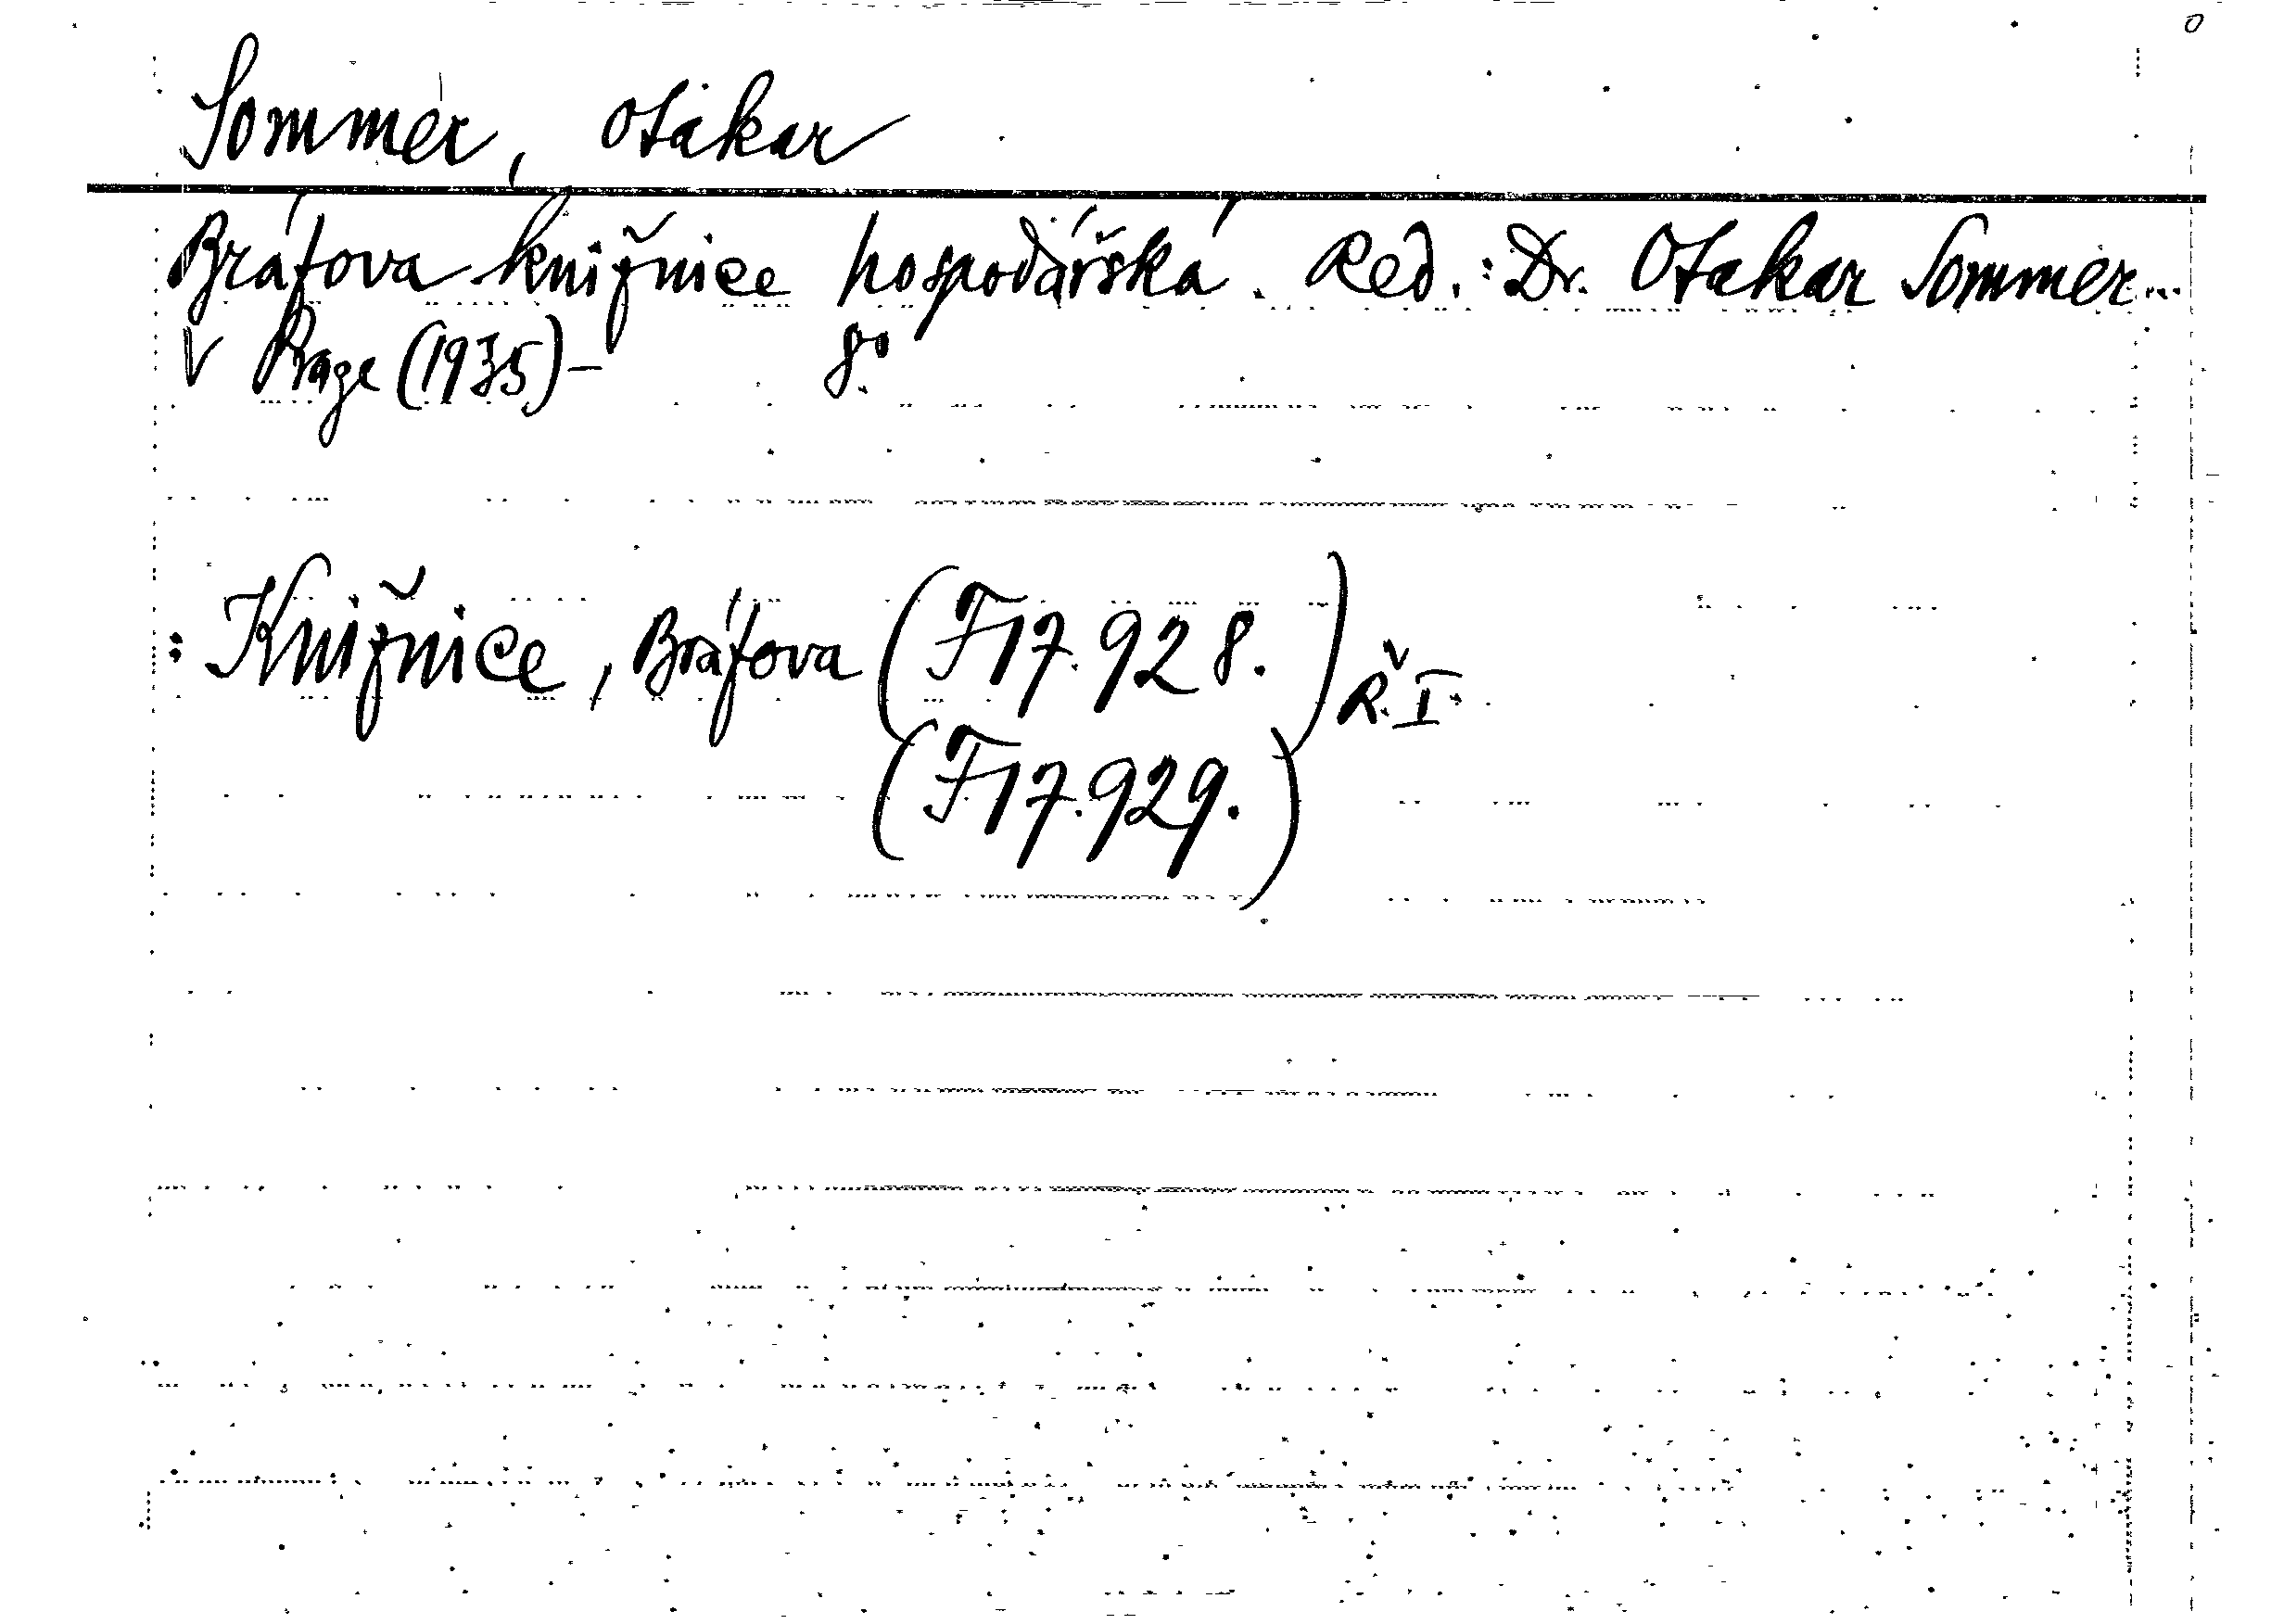 Sommer, Otakar
Bráfova knižnice hospodářská. Red.: Dr. Otakar Sommer...
V Praze (1935)- 8°
: Knižnice, Bráfova (F17.928.) Ř. I.
(F17.929.)